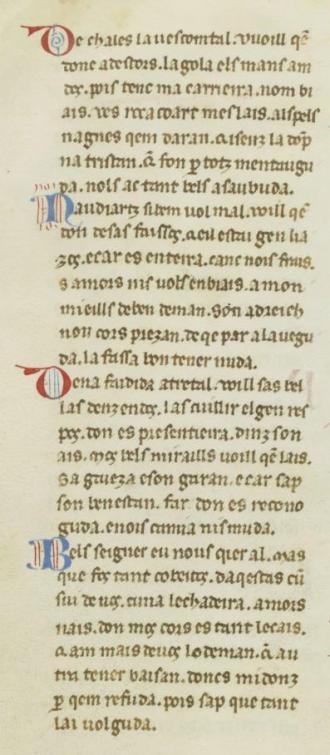 De chales la vescomtal. vuoill qē
done adestors. la gola els mans am
dos. pois tenc ma carrieira. nom bi
ais. ves roca coart meslais. als pels
nagnes qem daran. qisenz la dōp
na tristan. qi fon ꝑ totz mentaugu
da. nols ac tant bels a saubuda.
Naudiartz sibem vol mal. vuill qē
don de sas faissos. qeil estai gen lia
zos. e car es enteira. canc nois frais.
samors nis vols en biais. a mon
mieills deben deman. son adreich
nou cors prezan. de qe par a la vegu
da. la fassa bon tener nuda.
De na faidida atretal. vuill sas bel
las denz en dos. lascuillir el gen res
pos. don es presentieira. dinz son
ais. mos bels miraills voill qē lais.
sa gaieza e son garan. e car sap
son benestan. far don es recono
guda. e nois camia nis muda.
Bels seigner eu nous quer al. mas
que fos tant cobeitos. daqestas cū
sui de vos. cuna lechadeira. amors
nais. don mos cors es tant lecais.
qam mais de vos lo deman. qau
tra tener baisan. doncs midonz
ꝑ qem refuda. pois sap que tant
lai volguda.